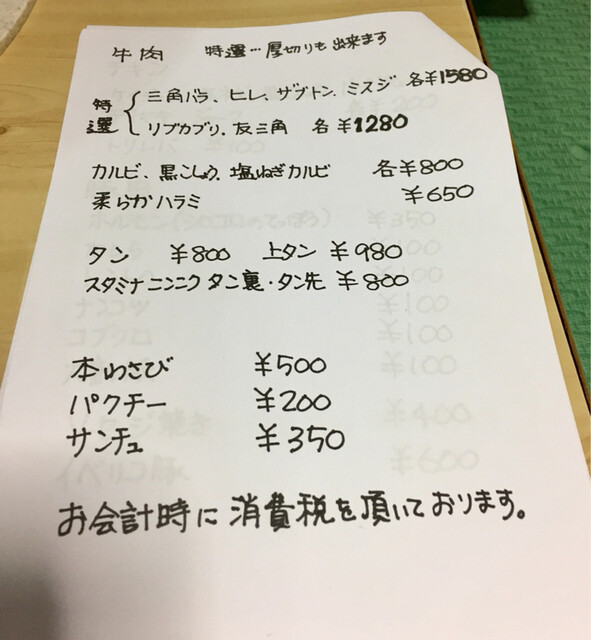 牛肉 特選…厚切りも出来ます
特選
三角バラ、ヒレ、ザブトン、ミスジ 各¥1580
リブカブリ、友三角 各¥1280
カルビ、黒こしょう、塩ねぎカルビ 各¥800
柔らかハラミ ¥650
タン ¥800 上タン ¥980
スタミナニンニク タン裏・タン先 ¥800
本わさび ¥500
パクチー ¥200
サンチュ ¥350
お会計時に消費税を頂いております。